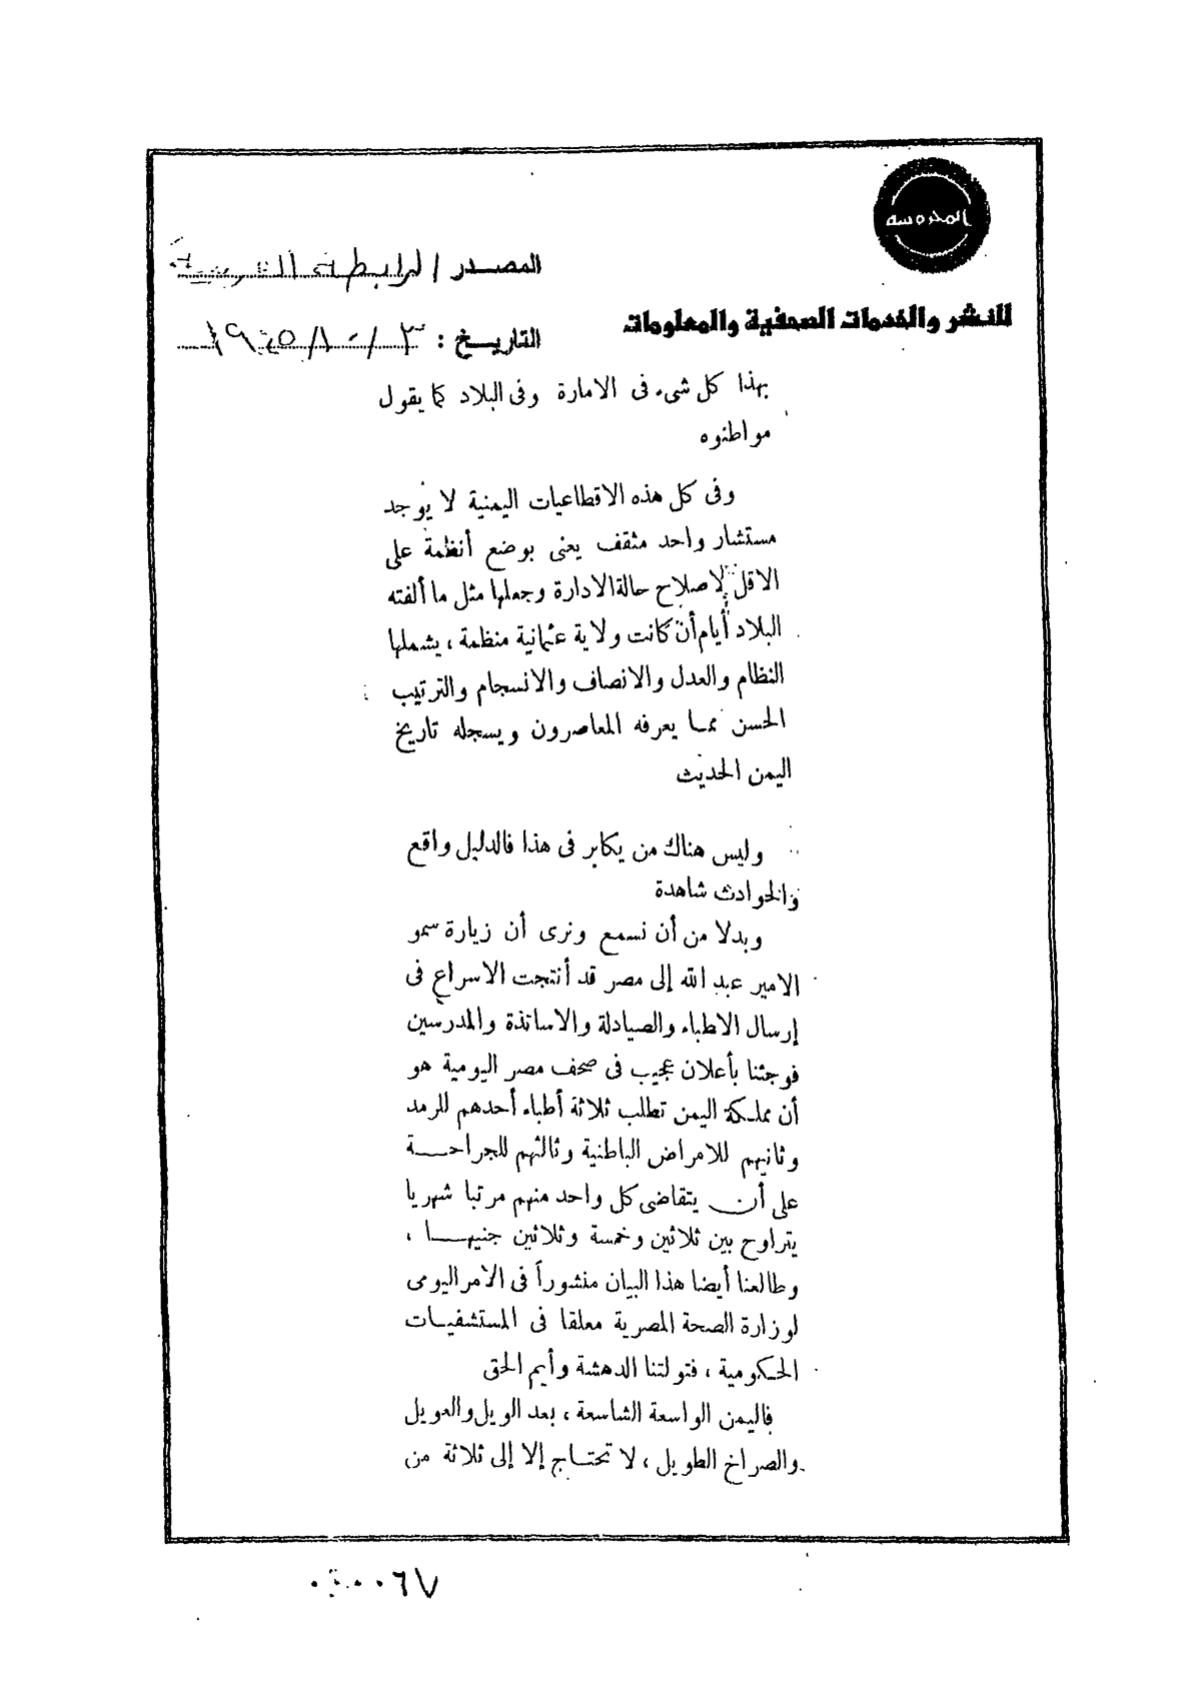 المحروسه
للنشر والخدمات الصحفية والمعلومات
المصدر / الرابطة العربية
التاريخ :
بهذا كل شىء فى الامارة وفى البلاد كما يقول
مواطنوه
وفى كل هذه الاقطاعيات اليمنية لا يوجد
مستشار واحد مثقف يعنى بوضع أنظمة على
الاقل لاصلاح حالة الادارة وجعلها مثل ما ألفته
البلاد أيام أن كانت ولاية عثمانية منظمة ، يشملها
النظام والعدل والانصاف والانسجام والترتيب
الحسن مما يعرفه المعاصرون ويسجله تاريخ
اليمن الحديث
وليس هناك من يكابر فى هذا فالدليل واقع
والحوادث شاهدة
وبدلا من أن نسمع ونرى أن زيارة سمو
الامير عبد الله إلى مصر قد أنتجت الاسراع فى
إرسال الاطباء والصيادلة والاساتذة والمدرسين
فوجئنا بأعلان عجيب فى صحف مصر اليومية هو
أن مملكة اليمن تطلب ثلاثة أطباء أحدهم للرمد
وثانيهم للامراض الباطنية وثالثهم للجراحة
على أن يتقاضى كل واحد منهم مرتبا شهريا
يتراوح بين ثلاثين وخمسة وثلاثين جنيها ،
وطالعنا أيضا هذا البيان منشوراً فى الامر اليومى
لوزارة الصحة المصرية معلقا فى المستشفيات
الحكومية ، فتولتنا الدهشة وأيم الحق
فاليمن الواسعة الشاسعة ، بعد الويل والعويل
والصراخ الطويل ، لا تحتاج إلا إلى ثلاثة من